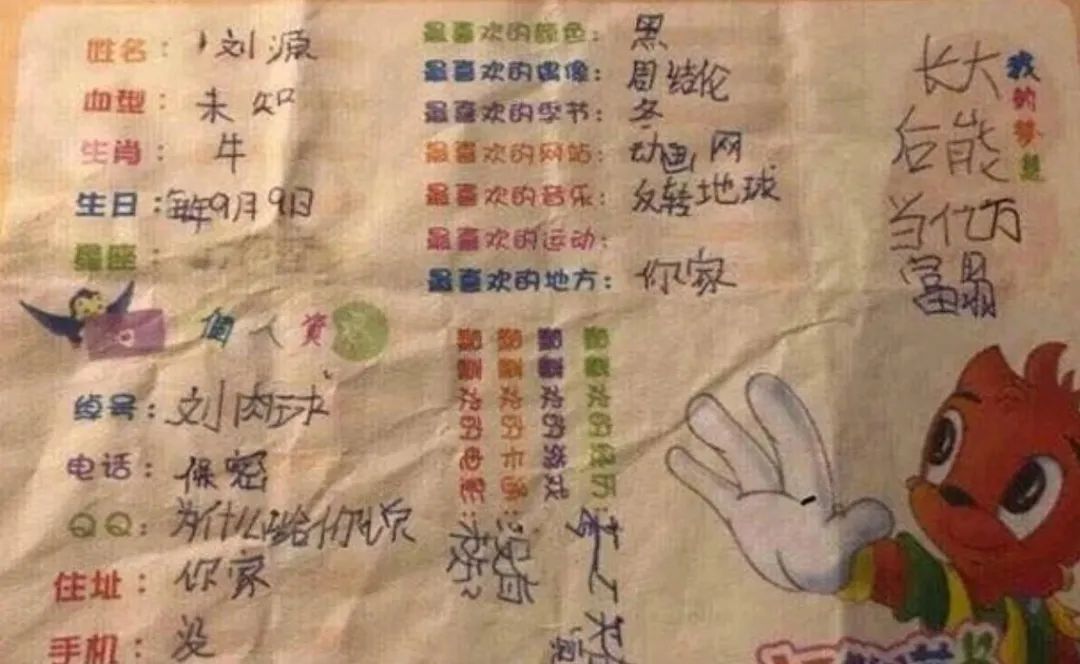 姓名：刘源
血型：未知
生肖：牛
生日：每年9月9日
星座：
個人資
绰号：刘肉球
电话：保密
QQ：为什么给你
住址：你家
手机：没
最喜欢的颜色：黑
最喜欢的偶像：周结伦
最喜欢的季节：冬
最喜欢的网站：动画网
最喜欢的音乐：反转地球
最喜欢的运动：
最喜欢的地方：你家
最喜欢的游戏
最喜欢的卡通：没有
最喜欢的电影：
我的梦想
长大
后能
当亿万
富